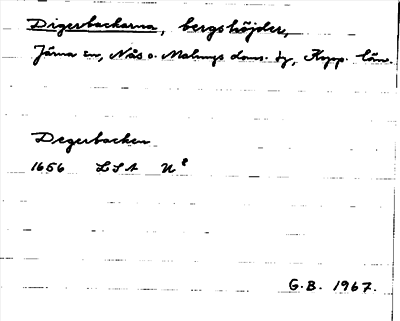 Digerbackarna, bergshöjder,
Järna sn, Nås o. Malungs doms. hg, Kopp. län.
Degerbacken
1656 LSA N
G.B. 1967.